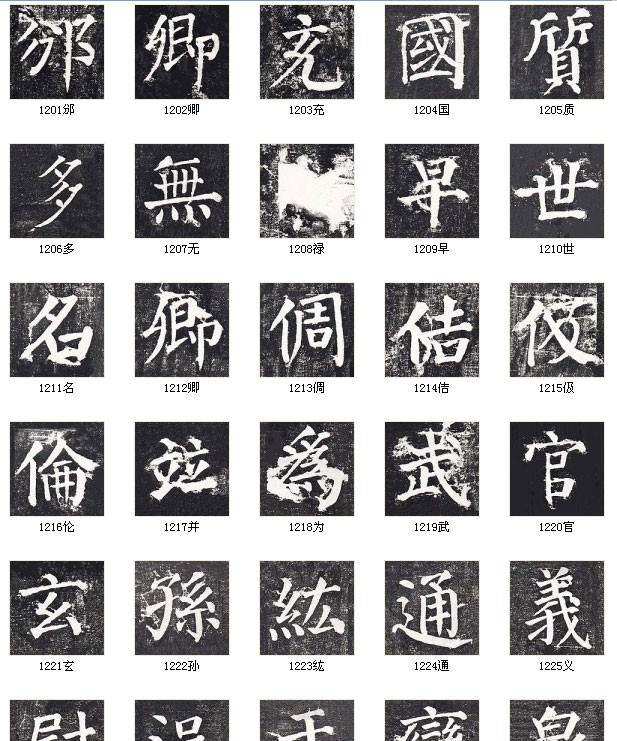 邠 卿 充 國 質
1201邠 1202卿 1203充 1204国 1205质
多 無 早 世
1206多 1207无 1208禄 1209早 1210世
名 卿 倜 佶 伋
1211名 1212卿 1213倜 1214佶 1215伋
倫 並 為 武 官
1216伦 1217并 1218为 1219武 1220官
玄 孫 紘 通 義
1221玄 1222孙 1223纮 1224通 1225义